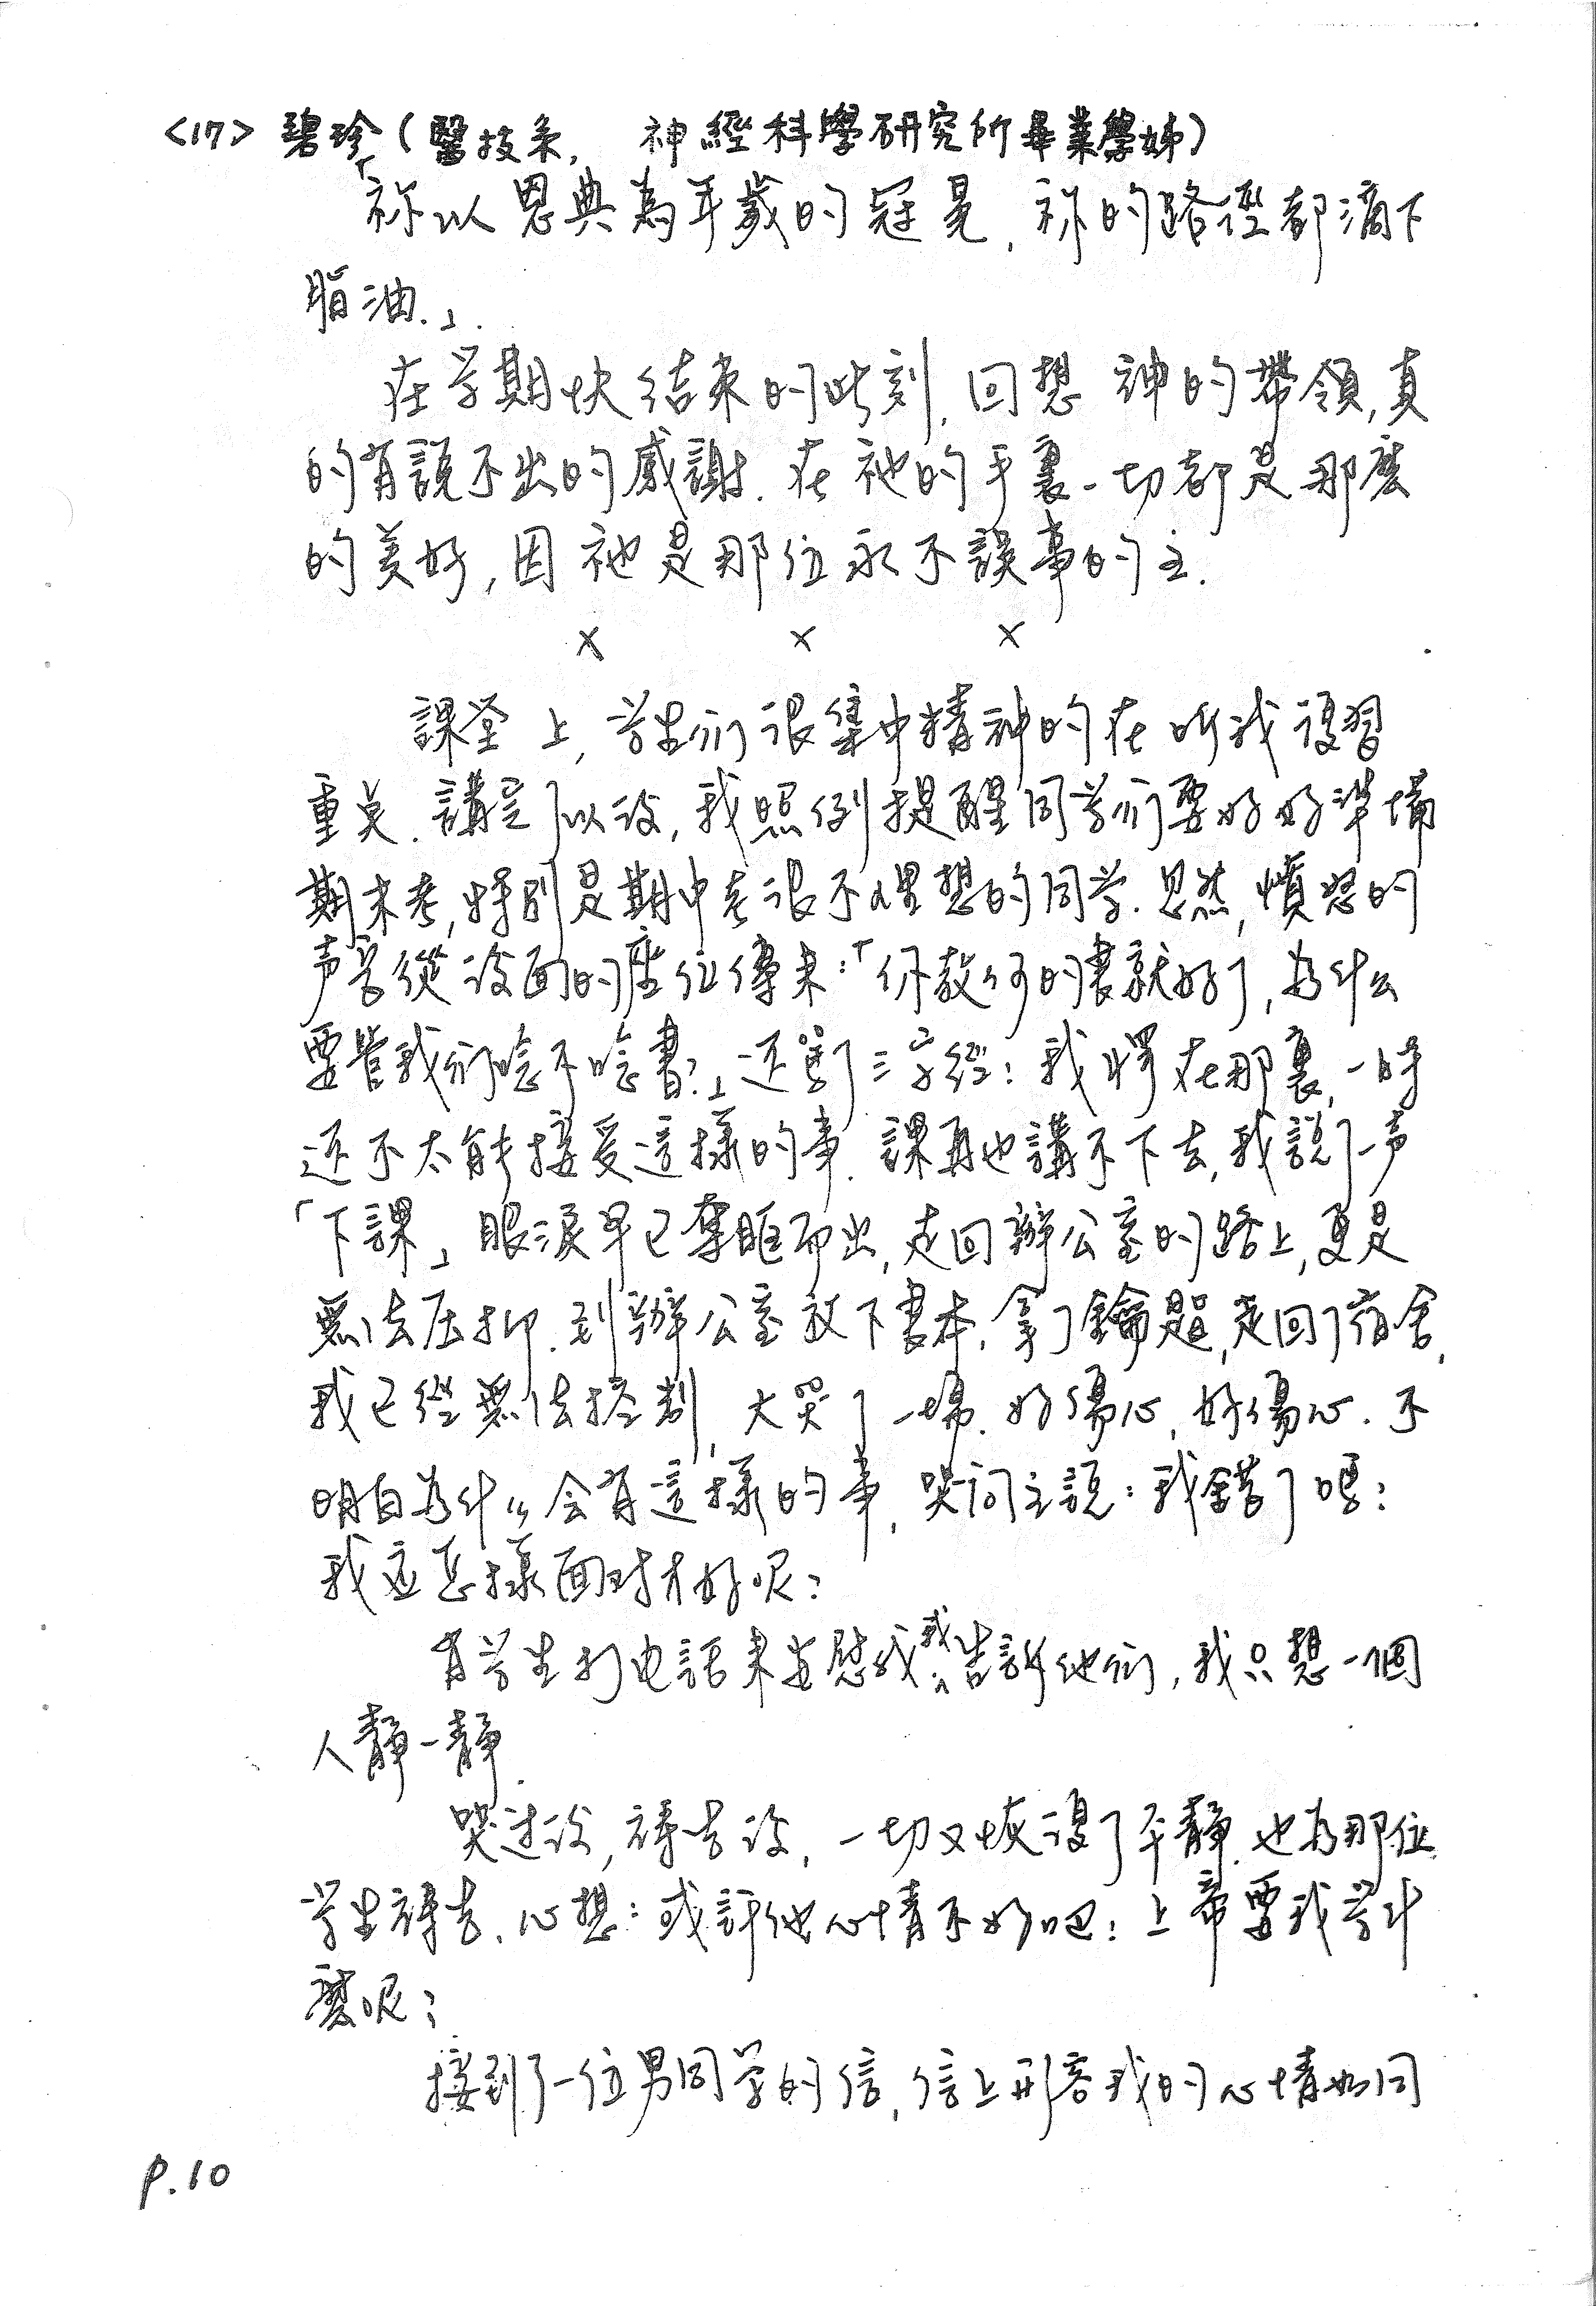 <17> 碧珍（醫技系, 神經科學研究所畢業學姊）
「祢以恩典為年歲的冠冕, 祢的路徑都滴下
脂油.」.
在学期快結束的此刻, 回想 神的帶領, 真
的有說不出的感謝. 在祂的手裏一切都是那麼
的美好, 因祂是那位永不誤事的主.
x x x
課堂上, 学生们很集中精神的在听我複習
重点. 講完了以後, 我照例提醒同学们要好好準備
期末考, 特別是期中考很不理想的同学. 忽然, 憤怒的
声音從後面的座位傳來:「你教你的書就好了, 為什么
要管我们唸不唸書?」还罵了三字經: 我愕在那裏, 一時
还不太能接受這樣的事. 課再也講不下去, 我說了一声
「下課」眼淚早已奪眶而出, 走回辦公室的路上, 更是
無法压抑. 到辦公室放下書本, 拿了鑰匙, 走回了宿舍,
我已經無法控制, 大哭了一場. 好傷心, 好傷心. 不
明白為什么会有這樣的事, 哭问主說: 我錯了嗎?
我应怎樣面对才好呢?
有学生打电話來安慰我, 我告訴他们, 我只想一個
人靜一靜.
哭过後, 禱告後, 一切又恢復了平靜. 也為那位
学生禱告. 心想: 或許他心情不好吧: 上帝要我学什
麼呢?
接到了一位男同学的信, 信上形容我的心情如同
P.10